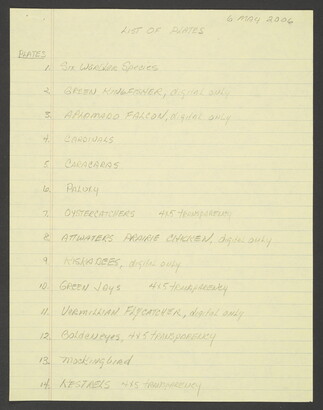 6 MAY 2006
LIST OF PLATES
PLATES
1. SIX WARBLER SPECIES
2. GREEN KINGFISHER, digital only
3. APLOMADO FALCON, digital only
4. CARDINALS
5. CARACARAS
6.
7. OYSTERCATCHERS 4x5 transparency
8. ATTWATERS PRAIRIE CHICKEN, digital only
9. KISKADEES, digital only
10. GREEN JAYS 4x5 transparency
11. VERMILLIAN FLYCATCHER, digital only
12. Goldeneyes, 4x5 TRANSPARENCY
13. Mockingbird
14. KESTRELS 4x5 TRANSPARENCY